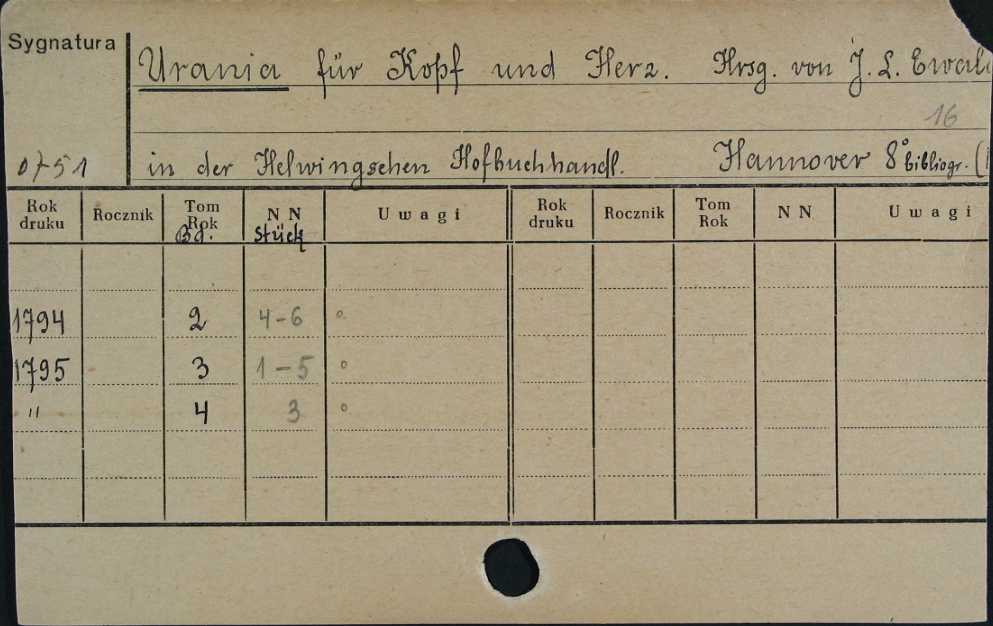 Sygnatura
Urania für Kopf und Herz. Hrsg. von J. L. Ewal
16
0751 in der Helwingschen Hofbuchhandl. Hannover 8° bibliogr. (
Rok druku Rocznik Tom Rok Bd. N N Stück Uwagi Rok druku Rocznik Tom Rok N N Uwagi
1794 2 4-6 °
1795 3 1-5 °
" 4 3 °